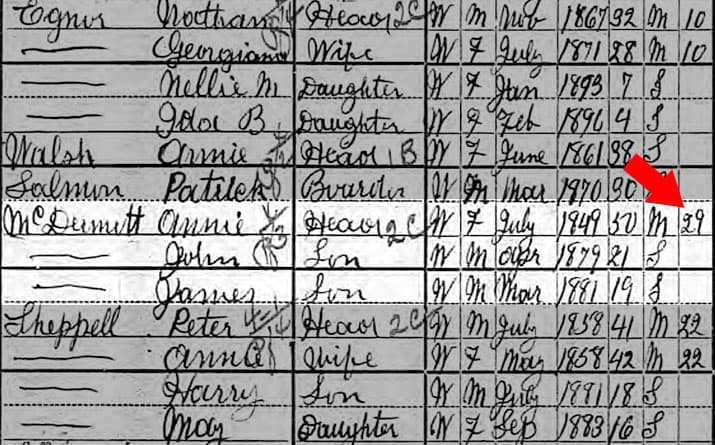 Egnor Nathan Head 2C W M Nov 1867 32 M 10
Georgiana Wife W F July 1871 28 M 10
Nellie M Daughter W F Jan 1893 7 S
Ida B Daughter W F Feb 1896 4 S
Walsh Annie Head 1B W F June 1861 38 S
Salmon Patrick Boarder W M Mar 1870 30
McDermitt Annie Head 2C W F July 1849 50 M 29
John Son W M Apr 1879 21 S
James Son W M Mar 1881 19 S
Sheppell Peter Head 2C W M July 1858 41 M 22
Anna Wife W F May 1858 42 M 22
Harry Son W M July 1881 18 S
May Daughter W F Sep 1883 16 S